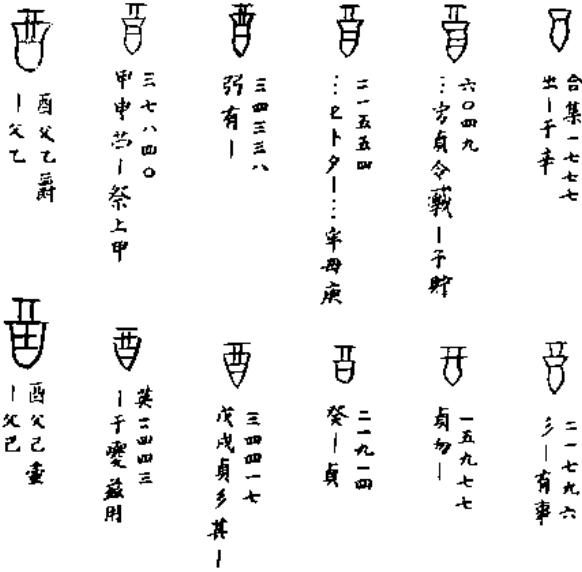 合集一七七七
㞢丨于辛
六〇四九
…㱿貞令戰丨子貯
二一五五四
…巳卜夕丨…牢母庚
三四三三八
弜有丨
三七八四〇
甲申𫹉丨祭上甲
酉父乙爵
丨父乙
二一七九六
彡丨有事
一五九七七
貞勿丨
二一九一四
癸丨貞
三四四一七
戊戌貞彡其丨
英二四四三
丨于夔茲用
酉父己壺
丨父己